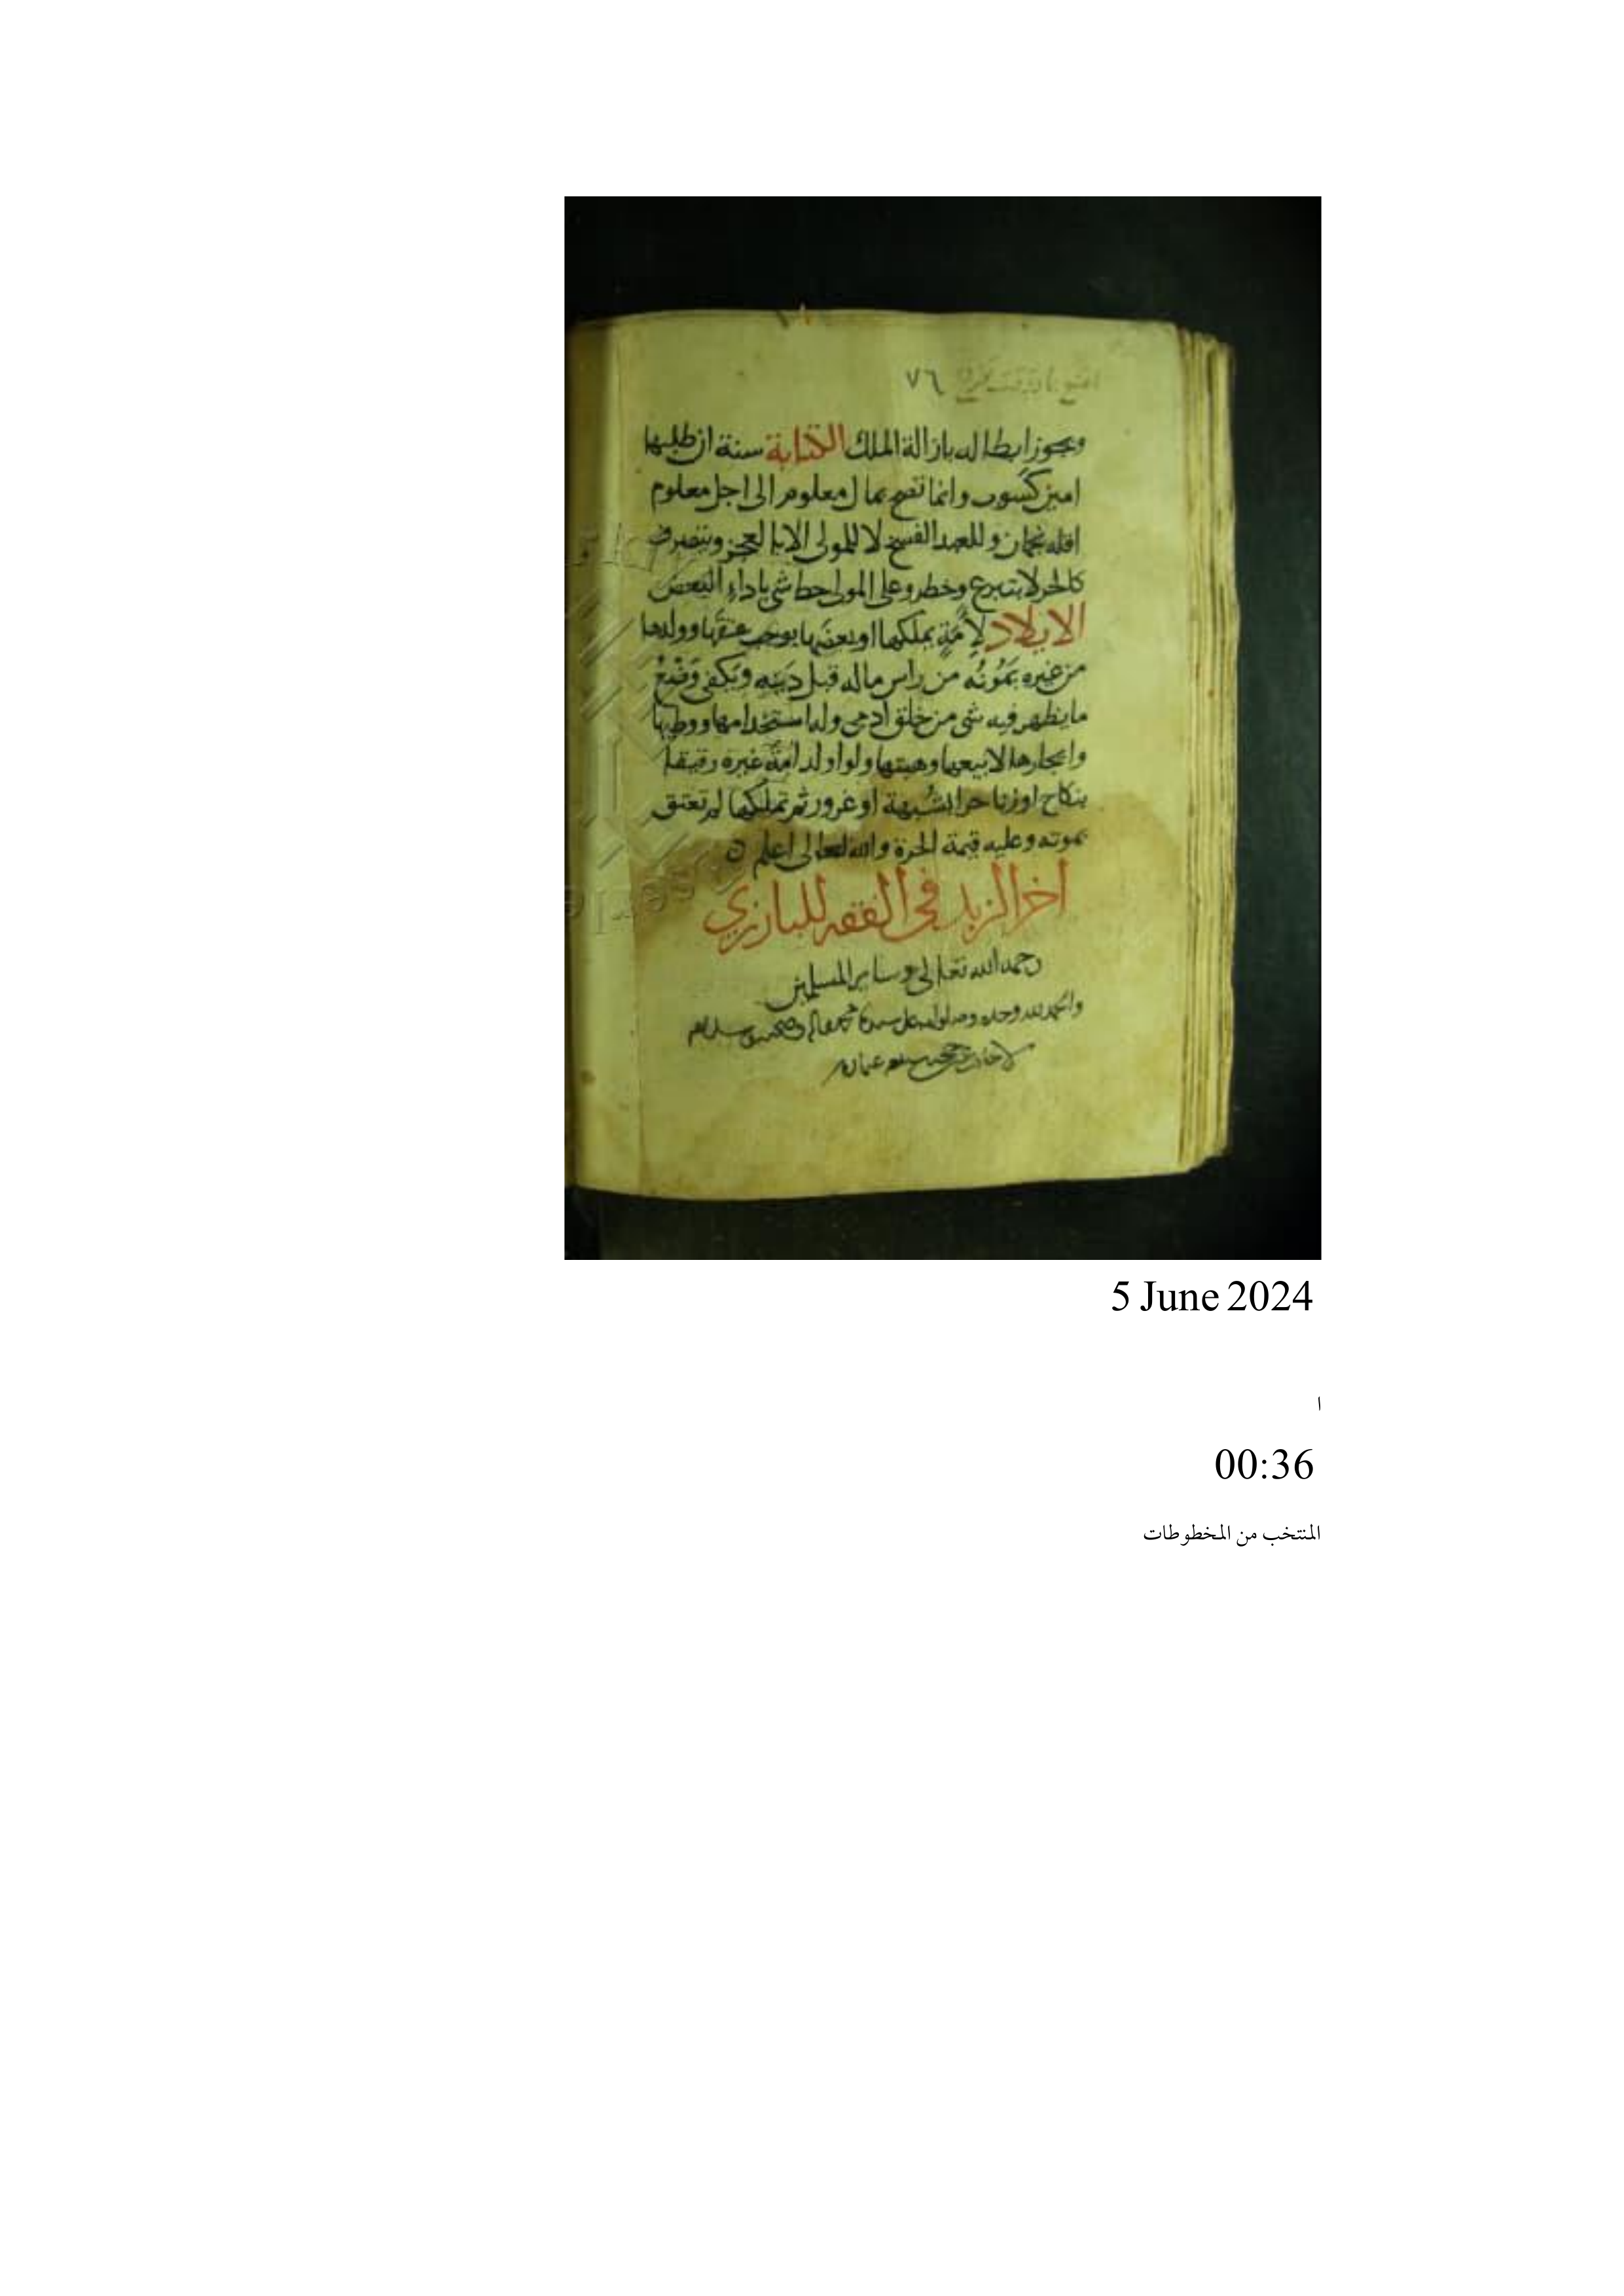 ٧٦
ويجوز ابطاله بازالة الملك الكتابة سنة ان طلبها
امين كسوب وانما تصح بمال معلوم الى اجل معلوم
اقله نجمان وللعبد الفسخ لا للمولى الا بالعجز ويتصرف
كالحر لا بتبرع وخطر وعلى المولى حط شي باداء البعض
الايلاد لأمة يملكها او بعضها يوجب عتقها وولدها
من غيره بموته من راس ماله قبل دينه ويكفي وضع
ما يظهر فيه شي من خلق ادمي وله استخدامها ووطيها
وايجارها لا بيعها وهبتها ولو اولد امة غيره رقيقا
بنكاح او زنا حرا لشبهة او غرور ثم تملكها لم تعتق
بموته وعليه قيمة الحرة والله تعالى اعلم
اخر الزبد في الفقه للبارزي
رحمه الله تعالى وساير المسلمين
والحمد لله وحده وصلواته على سيدنا محمد
5 June 2024
ا
00:36
المنتخب من المخطوطات